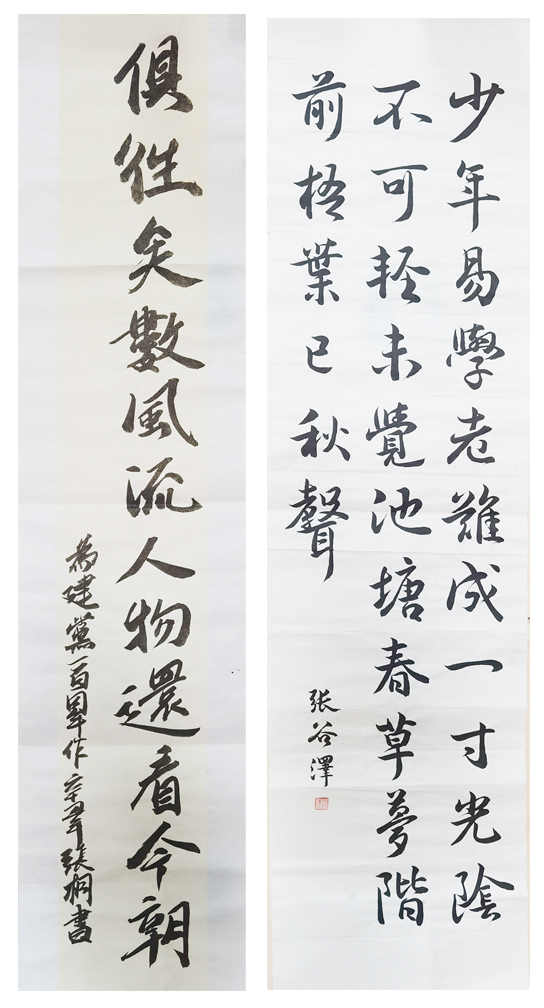 少年易學老難成一寸光陰
不可輕未覺池塘春草夢階
前梧葉已秋聲
张谷澤
俱往矣數風流人物還看今朝
為建黨一百周年作辛丑年張桐書